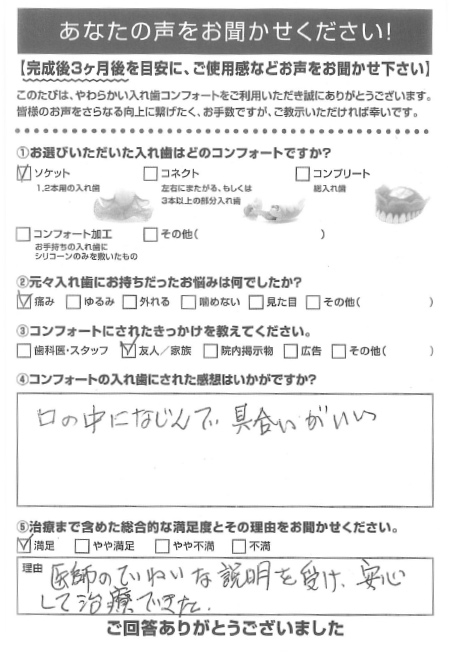 あなたの声をお聞かせください!
【完成後3ヶ月後を目安に、ご使用感などお声をお聞かせ下さい】
このたびは、やわらかい入れ歯コンフォートをご利用いただき誠にありがとうございます。
皆様のお声をさらなる向上に繋げたく、お手数ですが、ご教示いただければ幸いです。
①お選びいただいた入れ歯はどのコンフォートですか?
☑ソケット □コネクト □コンプリート
1,2本用の入れ歯 左右にまたがる、もしくは 総入れ歯
3本以上の部分入れ歯
□コンフォート加工 □その他( )
お手持ちの入れ歯に
シリコーンのみを敷いたもの
②元々入れ歯にお持ちだったお悩みは何でしたか?
☑痛み □ゆるみ □外れる □噛めない □見た目 □その他( )
③コンフォートにされたきっかけを教えてください。
□歯科医・スタッフ ☑友人/家族 □院内掲示物 □広告 □その他( )
④コンフォートの入れ歯にされた感想はいかがですか?
口の中になじんで 具合いがいい
⑤治療まで含めた総合的な満足度とその理由をお聞かせください。
☑満足 □やや満足 □やや不満 □不満
理由 医師のていねいな説明を受け、安心
して治療できた.
ご回答ありがとうございました